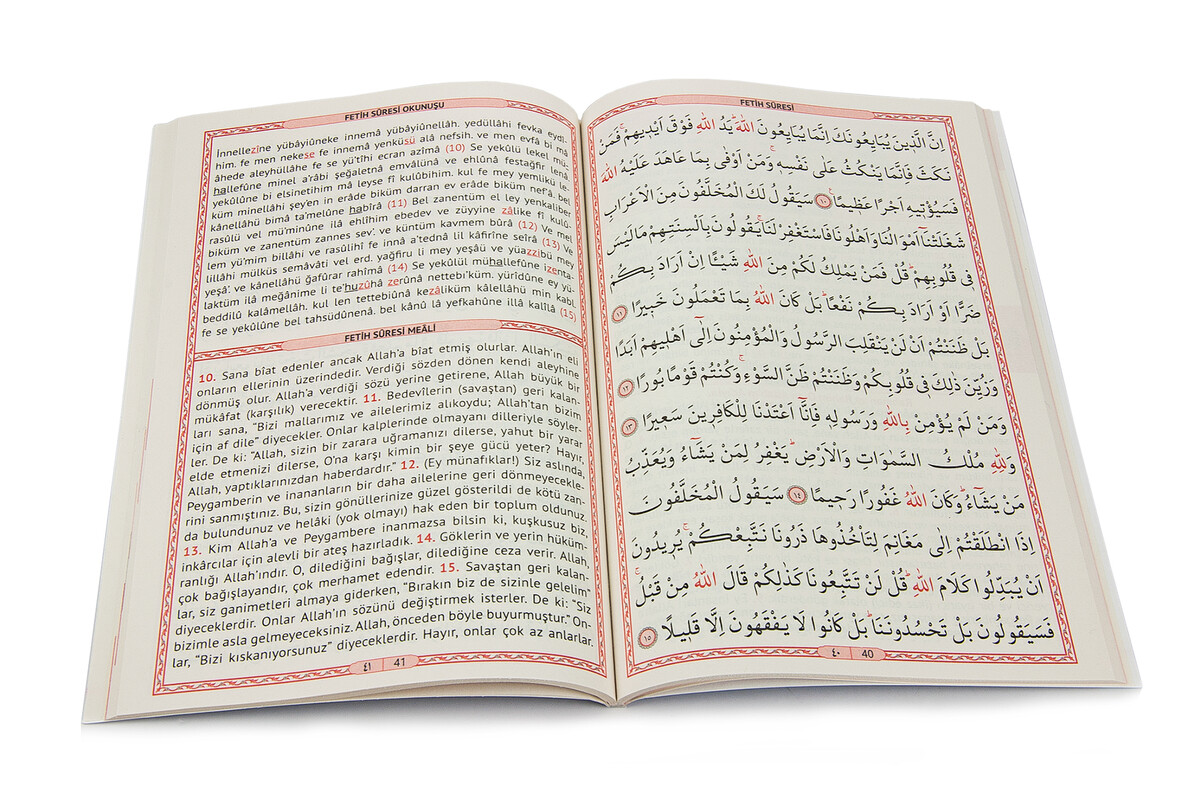 FETİH SÛRESİ
اِنَّ الَّذ۪ينَ يُبَايِعُونَكَ اِنَّمَا يُبَايِعُونَ اللّٰهَۜ يَدُ اللّٰهِ فَوْقَ اَيْد۪يهِمْۚ فَمَنْ
نَكَثَ فَاِنَّمَا يَنْكُثُ عَلٰى نَفْسِه۪ۚ وَمَنْ اَوْفٰى بِمَا عَاهَدَ عَلَيْهُ اللّٰهَ
فَسَيُؤْت۪يهِ اَجْرًا عَظ۪يمًا۟ ﴿١٠﴾ سَيَقُولُ لَكَ الْمُخَلَّفُونَ مِنَ الْاَعْرَابِ
شَغَلَتْنَٓا اَمْوَالُنَا وَاَهْلُونَا فَاسْتَغْفِرْ لَنَاۚ يَقُولُونَ بِاَلْسِنَتِهِمْ مَا لَيْسَ
ف۪ي قُلُوبِهِمْۜ قُلْ فَمَنْ يَمْلِكُ لَكُمْ مِنَ اللّٰهِ شَيْـًٔا اِنْ اَرَادَ بِكُمْ
ضَرًّا اَوْ اَرَادَ بِكُمْ نَفْعًاۜ بَلْ كَانَ اللّٰهُ بِمَا تَعْمَلُونَ خَب۪يرًا ﴿١١﴾
بَلْ ظَنَنْتُمْ اَنْ لَنْ يَنْقَلِبَ الرَّسُولُ وَالْمُؤْمِنُونَ اِلٰٓى اَهْل۪يهِمْ اَبَدًا
وَزُيِّنَ ذٰلِكَ ف۪ي قُلُوبِكُمْ وَظَنَنْتُمْ ظَنَّ السَّوْءِۚ وَكُنْتُمْ قَوْمًا بُورًا ﴿١٢﴾
وَمَنْ لَمْ يُؤْمِنْ بِاللّٰهِ وَرَسُولِه۪ فَاِنَّٓا اَعْتَدْنَا لِلْكَافِر۪ينَ سَع۪يرًا ﴿١٣﴾
وَلِلّٰهِ مُلْكُ السَّمٰوَاتِ وَالْاَرْضِۜ يَغْفِرُ لِمَنْ يَشَٓاءُ وَيُعَذِّبُ
مَنْ يَشَٓاءُۜ وَكَانَ اللّٰهُ غَفُورًا رَح۪يمًا ﴿١٤﴾ سَيَقُولُ الْمُخَلَّفُونَ
اِذَا انْطَلَقْتُمْ اِلٰى مَغَانِمَ لِتَأْخُذُوهَا ذَرُونَا نَتَّبِعْكُمْۚ يُر۪يدُونَ
اَنْ يُبَدِّلُوا كَلَامَ اللّٰهِۜ قُلْ لَنْ تَتَّبِعُونَا كَذٰلِكُمْ قَالَ اللّٰهُ مِنْ قَبْلُۚ
فَسَيَقُولُونَ بَلْ تَحْسُدُونَنَاۜ بَلْ كَانُوا لَا يَفْقَهُونَ اِلَّا قَل۪يلًا ﴿١٥﴾
٤٠ 40
FETİH SÛRESİ OKUNUŞU
İnnellezîne yübâyiûneke innemâ yübâyiûnellâh. yedüllâhi fevka eydî-
him. fe men nekese fe innemâ yenküsü alâ nefsih. ve men evfâ bi mâ
âhede aleyhüllâhe fe se yü'tîhi ecran azîmâ (10) Se yekûlü lekel mü-
hallefûne minel a'râbi şeğaletnâ emvâlünâ ve ehlûnâ festağfir lenâ.
yekûlûne bi elsinetihim mâ leyse fî kulûbihim. kul fe mey yemlikü le-
küm minellâhi şey'en in erâde biküm darran ev erâde biküm nef'â. bel
kânellâhü bimâ ta'melûne habîrâ (11) Bel zanentüm el ley yenkaliber
rasûlü vel mü'minûne ilâ ehlîhim ebedev ve züyyine zâlike fî kulû-
biküm ve zanentüm zannes sev'. ve küntüm kavmem bûrâ (12) Ve mel
lem yü'mim billâhi ve rasûlihî fe innâ a'tednâ lil kâfirîne seîrâ (13) Ve
lillâhi mülküs semâvâti vel erd. yağfiru li mey yeşâü ve yüazzibü mey
yeşâ'. ve kânellâhü ğafûrar rahîmâ (14) Se yekûlül mühallefûne izenta-
laktüm ilâ meğânime li te'huzûhâ zerûnâ nettebi'küm. yürîdûne ey yü-
beddilû kalâmellâh. kul len tettebiûnâ kezâliküm kâlellâhü min kabl.
fe se yekûlûne bel tahsüdûnenâ. bel kânû lâ yefkahûne illâ kalîlâ (15)
FETİH SÛRESİ MEÂLİ
10. Sana bîat edenler ancak Allah'a bîat etmiş olurlar. Allah'ın eli
onların ellerinin üzerindedir. Verdiği sözden dönen kendi aleyhine
dönmüş olur. Allah'a verdiği sözü yerine getirene, Allah büyük bir
mükâfat (karşılık) verecektir. 11. Bedevîlerin (savaştan) geri kalan-
ları sana, "Bizi mallarımız ve ailelerimiz alıkoydu; Allah'tan bizim
için af dile" diyecekler. Onlar kalplerinde olmayanı dilleriyle söyler-
ler. De ki: "Allah, sizin bir zarara uğramanızı dilerse, yahut bir yarar
elde etmenizi dilerse, O'na karşı kimin bir şeye gücü yeter? Hayır,
Allah, yaptıklarınızdan haberdardır." 12. (Ey münafıklar!) Siz aslında,
Peygamberin ve inananların bir daha ailelerine geri dönmeyecekle-
rini sanmıştınız. Bu, sizin gönüllerinize güzel gösterildi de kötü zan-
da bulundunuz ve helâki (yok olmayı) hak eden bir toplum oldunuz.
13. Kim Allah'a ve Peygambere inanmazsa bilsin ki, kuşkusuz biz,
inkârcılar için alevli bir ateş hazırladık. 14. Göklerin ve yerin hüküm-
ranlığı Allah'ındır. O, dilediğini bağışlar, dilediğine ceza verir. Allah,
çok bağışlayandır, çok merhamet edendir. 15. Savaştan geri kalan-
lar, siz ganimetleri almaya giderken, "Bırakın biz de sizinle gelelim"
diyeceklerdir. Onlar Allah'ın sözünü değiştirmek isterler. De ki: "Siz
bizimle asla gelmeyeceksiniz. Allah, önceden böyle buyurmuştur." On-
lar, "Bizi kıskanıyorsunuz" diyeceklerdir. Hayır, onlar çok az anlarlar.
٤١ 41